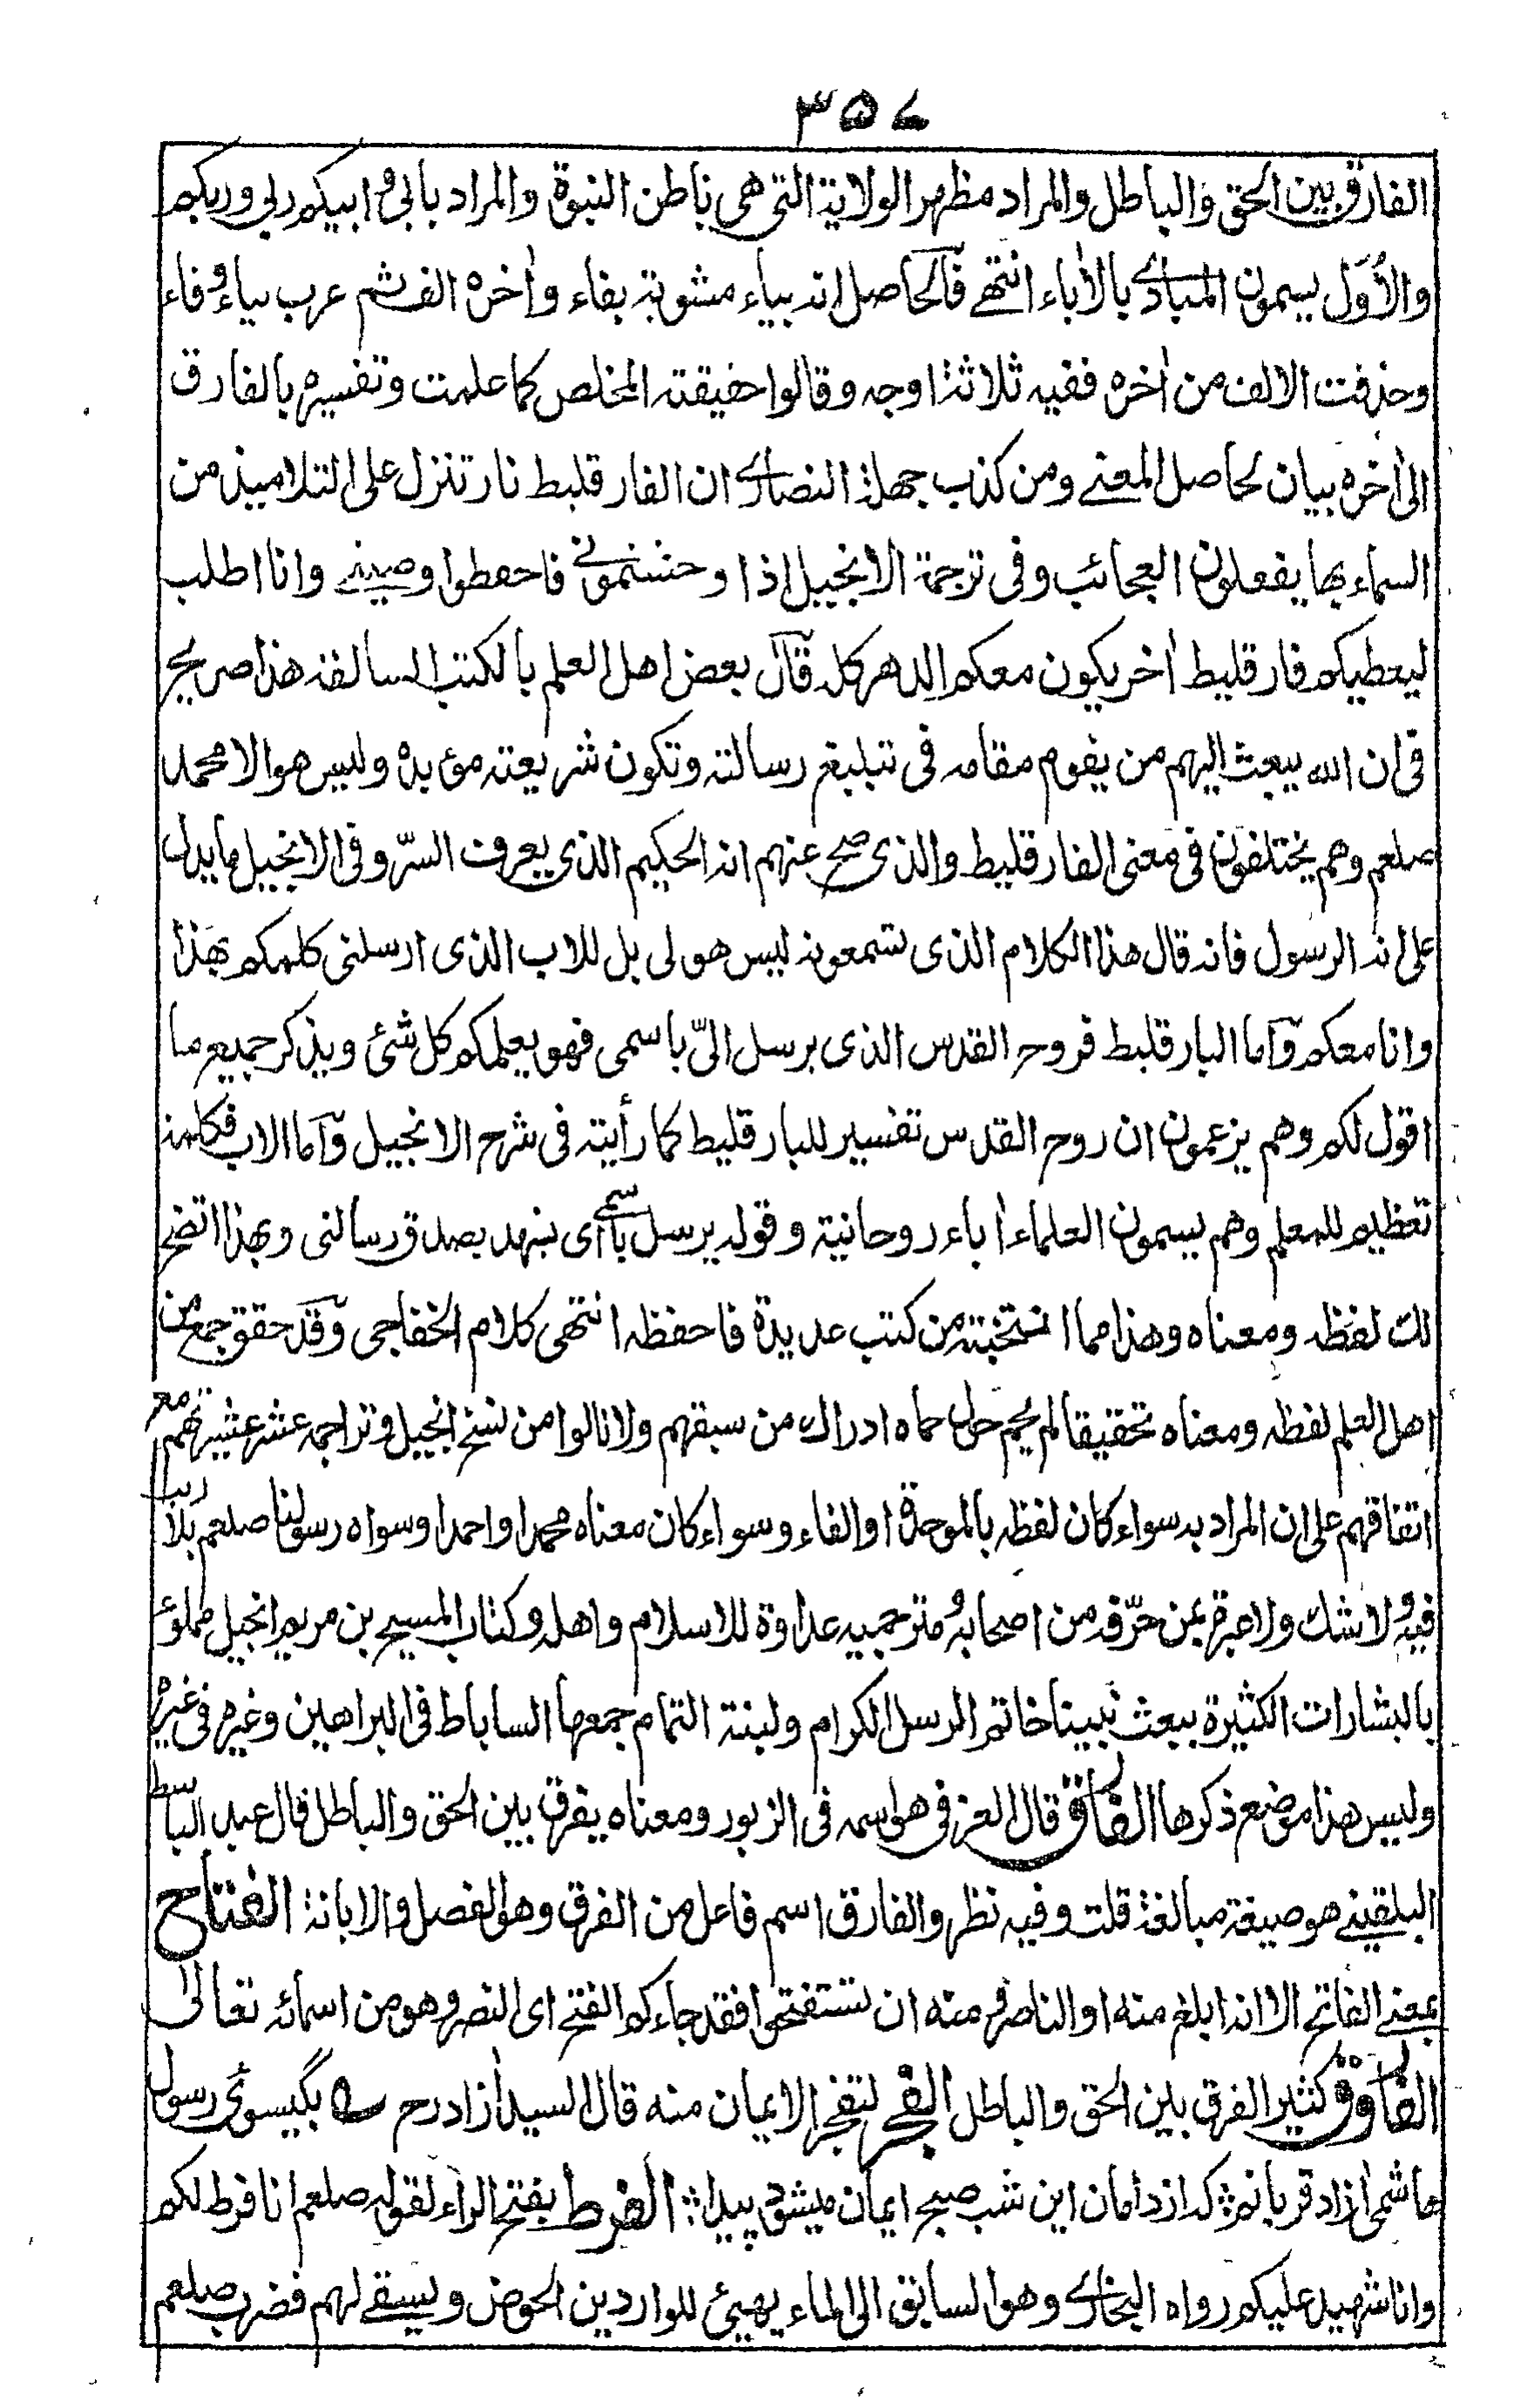 ۳۵۷
الفارق بين الحق والباطل والمراد مظهر الولاية التى هى باطن النبوة والمراد بابى وابيكم ربى وربكم
والأول يسمون المبادى بالأباء انتهى فالحاصل انه بباء مشوبة بفاء وأخره الف ثم عرب بباء وفاء
وحذفت الالف من أخره ففيه ثلاثة اوجه وقالوا حقيقته المخلص كما علمت وتفسيره بالفارق
الى أخره بيان لحاصل المعنى ومن كذب جهلة النصارى ان الفارقليط نار تنزل على التلاميذ من
السماء بها يفعلون العجائب وفى ترجمة الانجيل اذا فاحفظوا وصيتى وانا اطلب
ليعطيكم فارقليط أخر يكون معكم الدهر كله قال بعض اهل العلم بالكتب السالفة هذا صريح
فى ان الله يبعث اليهم من يقوم مقامه فى تبليغ رسالته وتكون شريعته مؤبدة وليس هو الا محمد
صلعم وهم يختلفون فى معنى الفارقليط والذى صح عنهم انه الحكيم الذى يعرف السرّ وفى الانجيل ما يدل
على انه الرسول فانه قال هذا الكلام الذى تسمعونه ليس هو لى بل للاب الذى ارسلنى كلمكم بهذا
وانا معكم وأما البارقليط فروح القدس الذى يرسل الىّ باسمى فهو يعلمكم كل شئ ويذكر جميع ما
اقول لكم وهم يزعمون ان روح القدس تفسير للبارقليط كما رأيته فى شرح الانجيل وأما الاب فكلمة
تعظيم للمعلم وهم يسمون العلماء أباء روحانية وقوله يرسل باسمى اى بنهد بصدق رسالتى وبهذا اتضح
لك لفظه ومعناه وهذا مما انتخبته من كتب عديدة فاحفظه انتهى كلام الخفاجى وقد حقق جمع من
اهل العلم لفظه ومعناه تحقيقا لم يحم حول حماه ادراك من سبقهم ولا نالوا من نسخ انجيل وتراجمه عشر عشيرتهم مع
اتفاقهم على ان المراد به سواء كان لفظه بالموحدة او الفاء وسواء كان معناه محمدا واحمدا وسواه رسولنا صلعم بلا ريب
فيه ولا شك ولا عبرة بمن حرّفه من اصحابه ومترجميه عداوة للاسلام واهله وكتاب المسيح بن مريم انجيل مملوء
بالبشارات الكثيرة ببعث نبينا خاتم الرسل الكرام ولبنة التمام جمعها الساباط فى البراهين وغيره فى غيره
وليس هذا موضع ذكرها الفارق قال العزفى هو اسمه فى الزبور ومعناه يفرق بين الحق والباطل قال عبد الباسط
البلقينى هو صيغة مبالغة قلت وفيه نظر والفارق اسم فاعل من الفرق وهو الفصل والابانة الفتاح
بمعنى الفاتح الا انه ابلغ منه او الناصر ومنه ان تستفتحوا فقد جاءكم الفتح اى النصر وهو من اسمائه تعالى
الفاروق كثير الفرق بين الحق والباطل الفجر لتفجر الايمان منه قال السيد أزاد رح بگيسوى رسول
هاشمى أزاد قربانم كه از دامان اين شب صبح ايمان ميشود پيدا الفرط بفتح الراء لقوله صلعم انا فرط لكم
وانا شهيد عليكم رواه البخارى وهو السابق الى الماء يهيئ للواردين الحوض ويسقى لهم فضرب صلعم